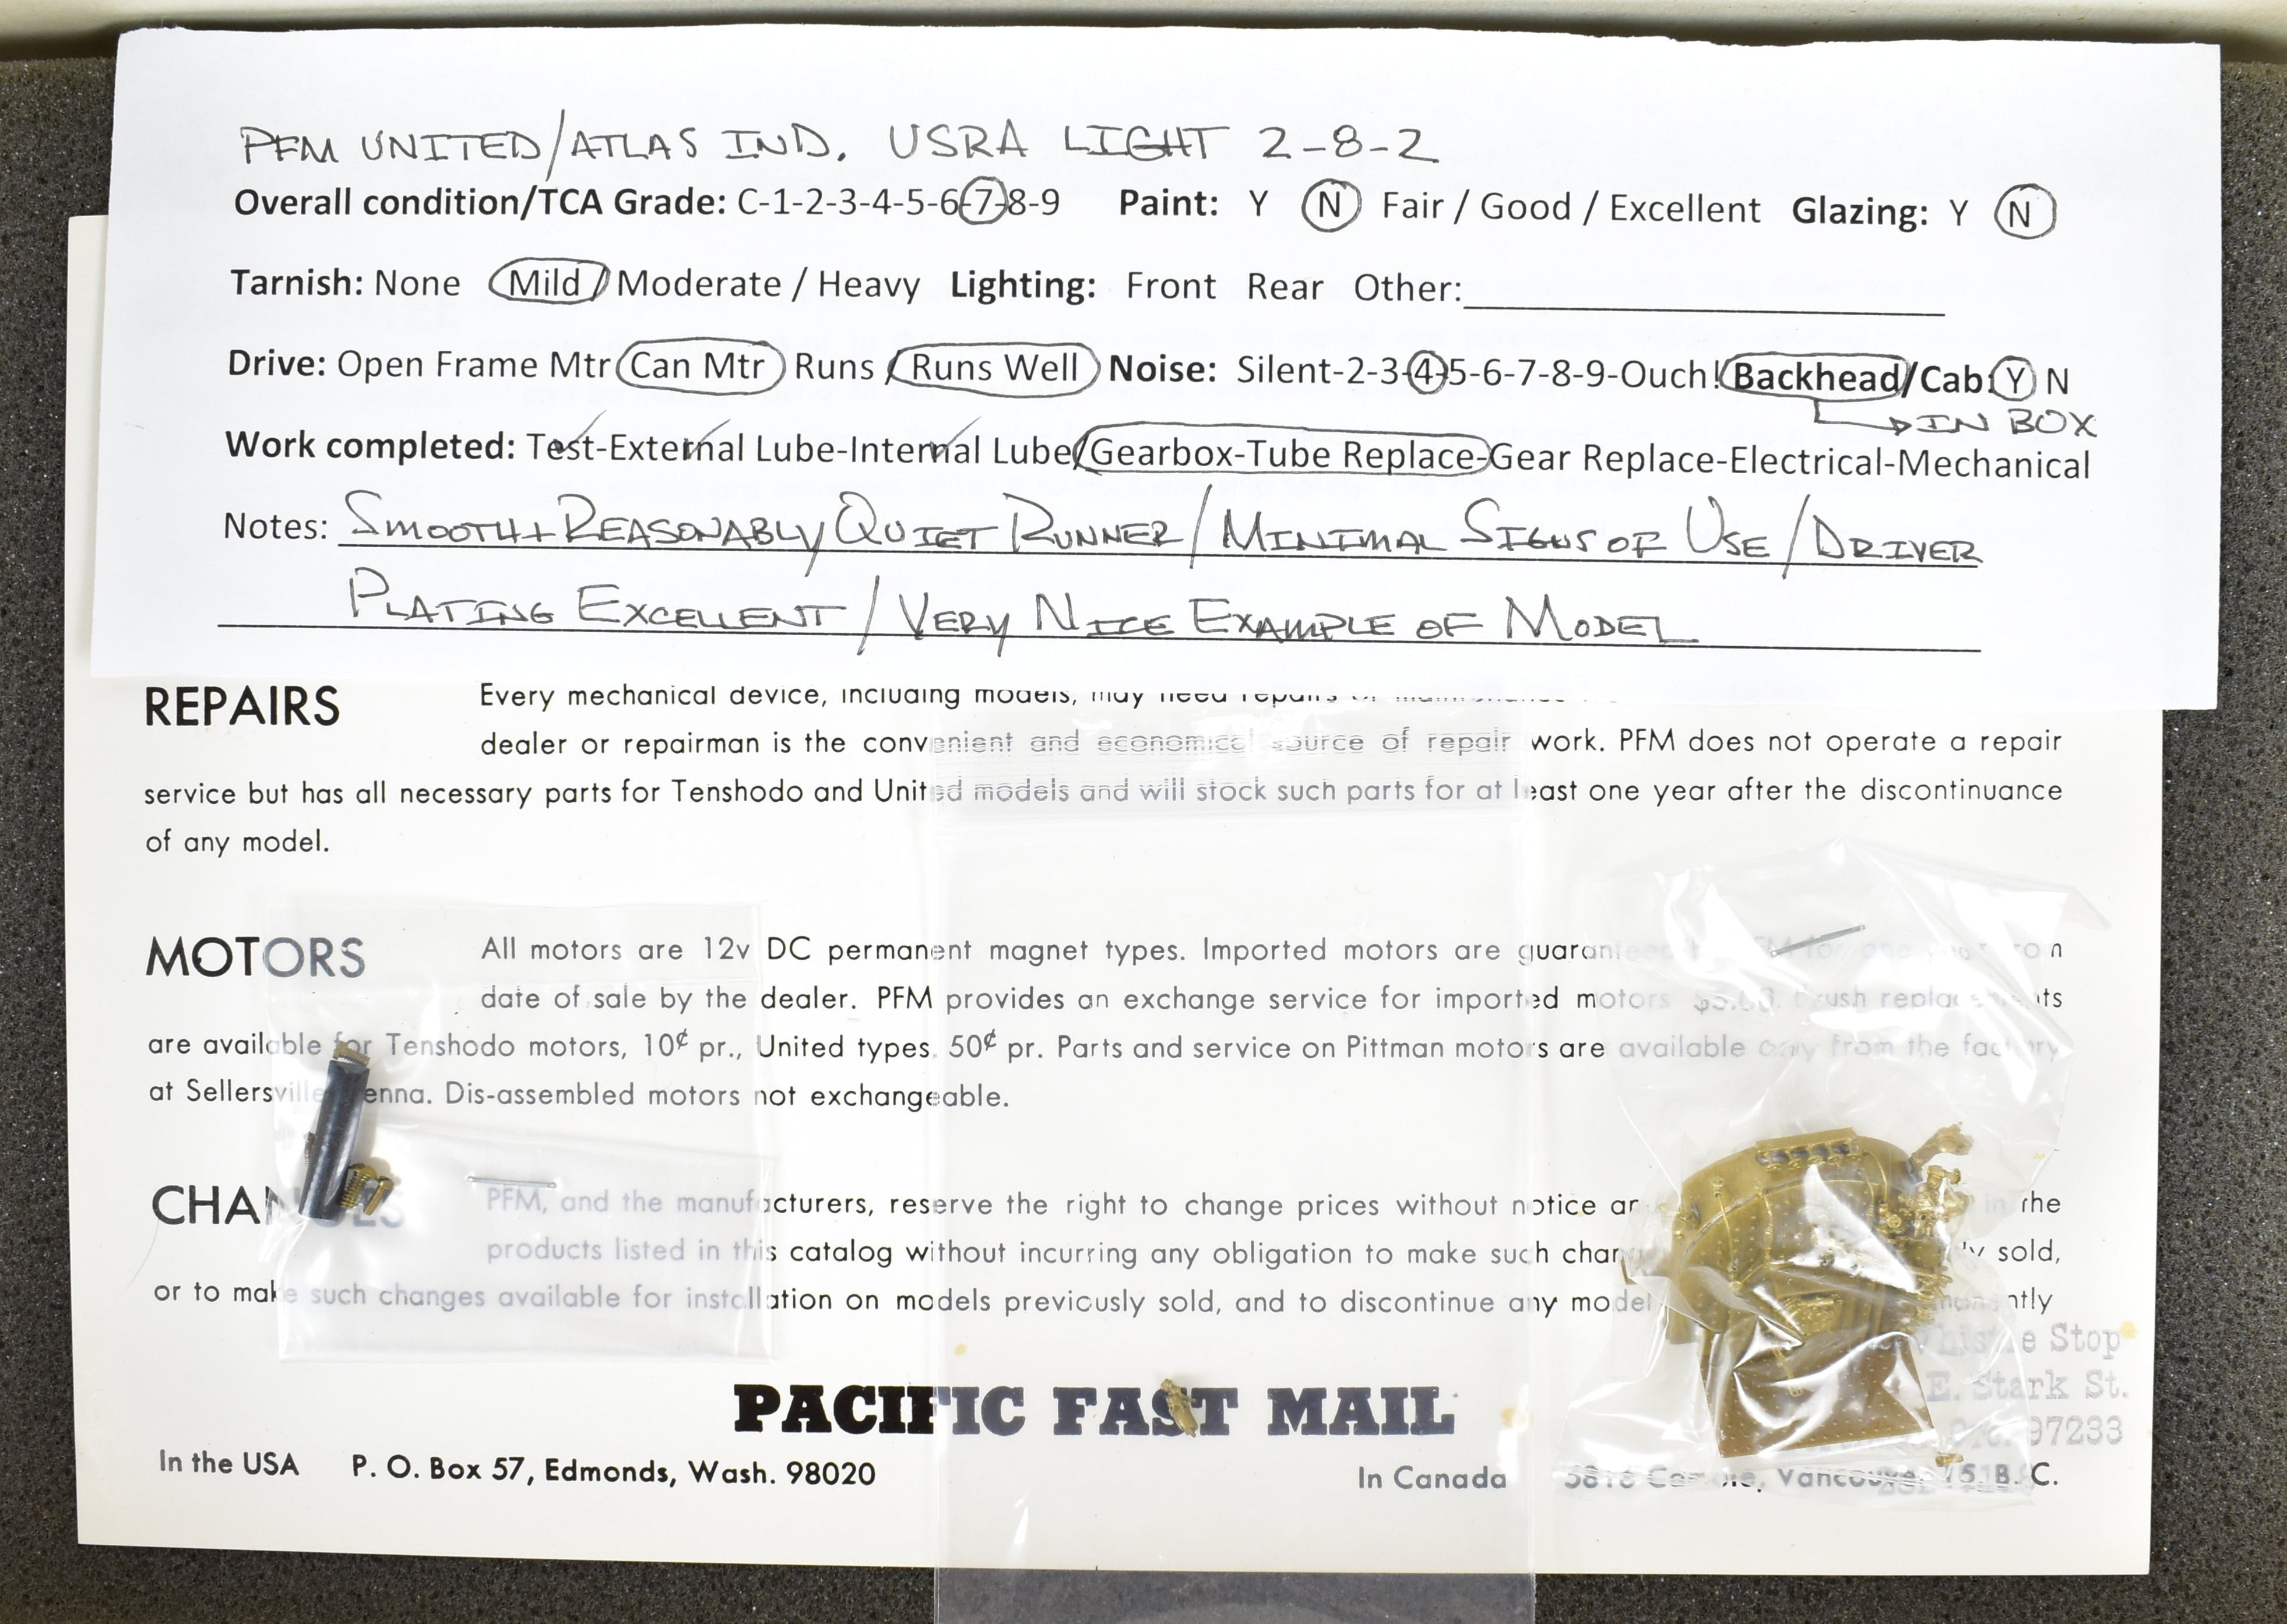 PFM UNITED/ATLAS IND. USRA LIGHT 2-8-2
Overall condition/TCA Grade: C-1-2-3-4-5-6-7-8-9 Paint: Y N Fair / Good / Excellent Glazing: Y N
Tarnish: None Mild / Moderate / Heavy Lighting: Front Rear Other:
Drive: Open Frame Mtr Can Mtr Runs / Runs Well Noise: Silent-2-3-4-5-6-7-8-9-Ouch! Backhead/Cab: Y N
IN BOX
Work completed: Test-External Lube-Internal Lube/Gearbox-Tube Replace-Gear Replace-Electrical-Mechanical
Notes: SMOOTH + REASONABLY QUIET RUNNER / MINIMAL SIGNS OF USE / DRIVER
PLATING EXCELLENT / VERY NICE EXAMPLE OF MODEL
REPAIRS Every mechanical device, including models, may need repairs
dealer or repairman is the convenient and economical source of repair work. PFM does not operate a repair
service but has all necessary parts for Tenshodo and United models and will stock such parts for at least one year after the discontinuance
of any model.
MOTORS All motors are 12v DC permanent magnet types. Imported motors are guaranteed by PFM for one year from
date of sale by the dealer. PFM provides an exchange service for imported motors $3.00. Brush replacements
are available for Tenshodo motors, 10¢ pr., United types, 50¢ pr. Parts and service on Pittman motors are available only from the factory
at Sellersville, Penna. Dis-assembled motors not exchangeable.
CHANGES PFM, and the manufacturers, reserve the right to change prices without notice in the
products listed in this catalog without incurring any obligation to make such sold,
or to make such changes available for installation on models previously sold, and to discontinue any model
Whistle Stop
E. Stark St.
97233
PACIFIC FAST MAIL
In the USA P. O. Box 57, Edmonds, Wash. 98020
In Canada Vancouver 15, B. C.